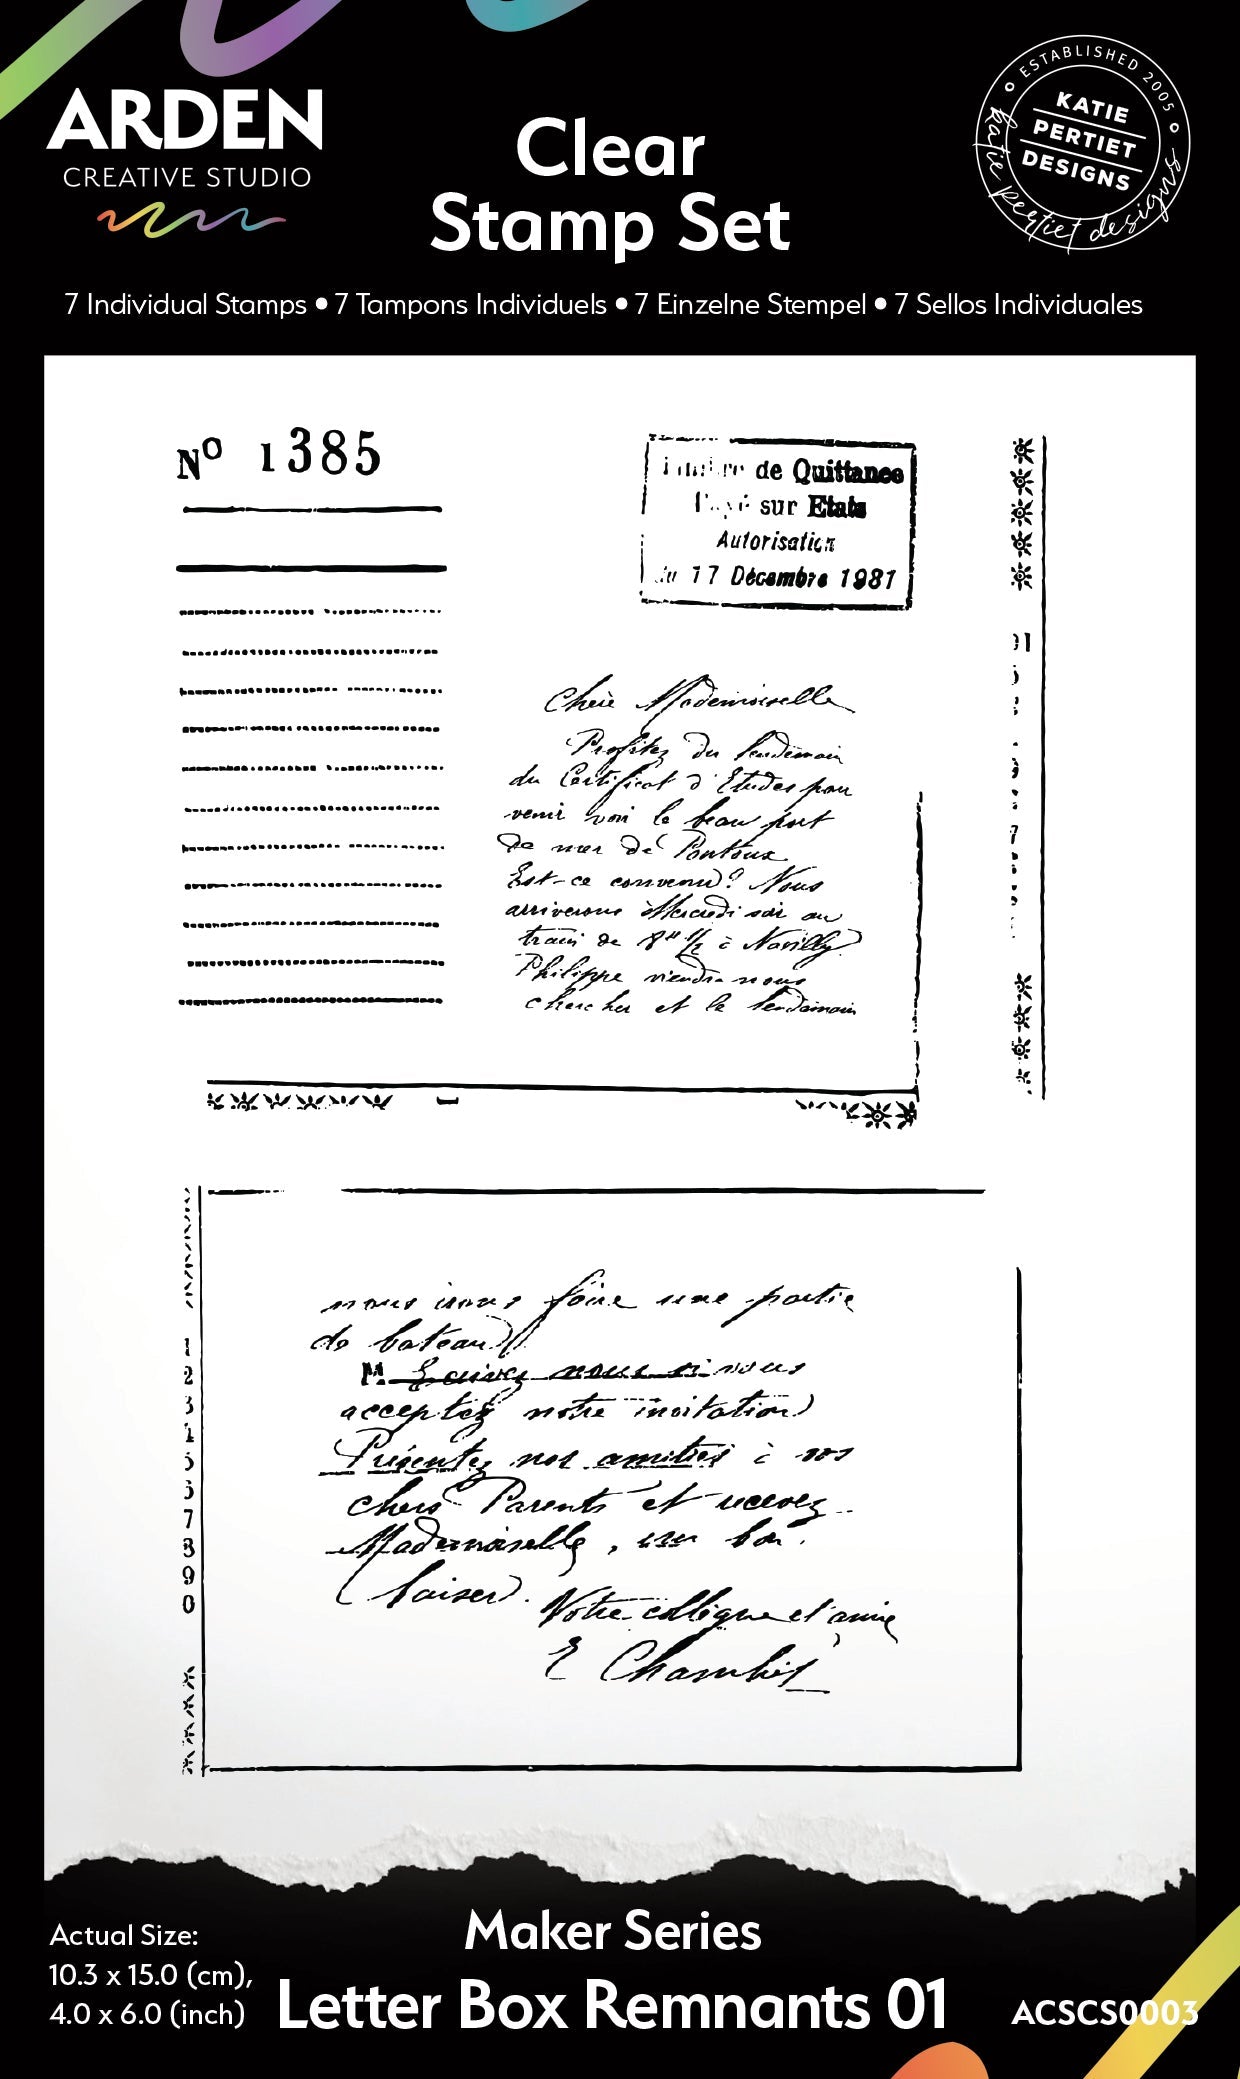 ARDEN
CREATIVE STUDIO
Clear
Stamp Set
ESTABLISHED 2005
KATIE
PERTIET
DESIGNS
katie pertiet designs
7 Individual Stamps • 7 Tampons Individuels • 7 Einzelne Stempel • 7 Sellos Individuales
Nº 1385
de Quittance
sur Etats
Autorisation
du 17 Décembre 1981
Chère Mademoiselle
Profitez du lendemain
du Certificat d'Etudes pour
venir voir le beau port
de mer de Pontoux
Est-ce convenu? Nous
arriverons Mercredi soir au
train de 8H 1/2 à Navilly
Philippe viendra nous
chercher et le lendemain
nous irons faire une partie
de bateau
M. Ecrivez nous si vous
acceptez notre invitation
Présentez nos amitiés à vos
chers Parents et recevez
Mademoiselle, un bon
baiser.
Votre collègue et amie
E
1
2
3
1
5
5
7
8
9
0
Maker Series
Letter Box Remnants 01
Actual Size:
10.3 x 15.0 (cm),
4.0 x 6.0 (inch)
ACSCS0003